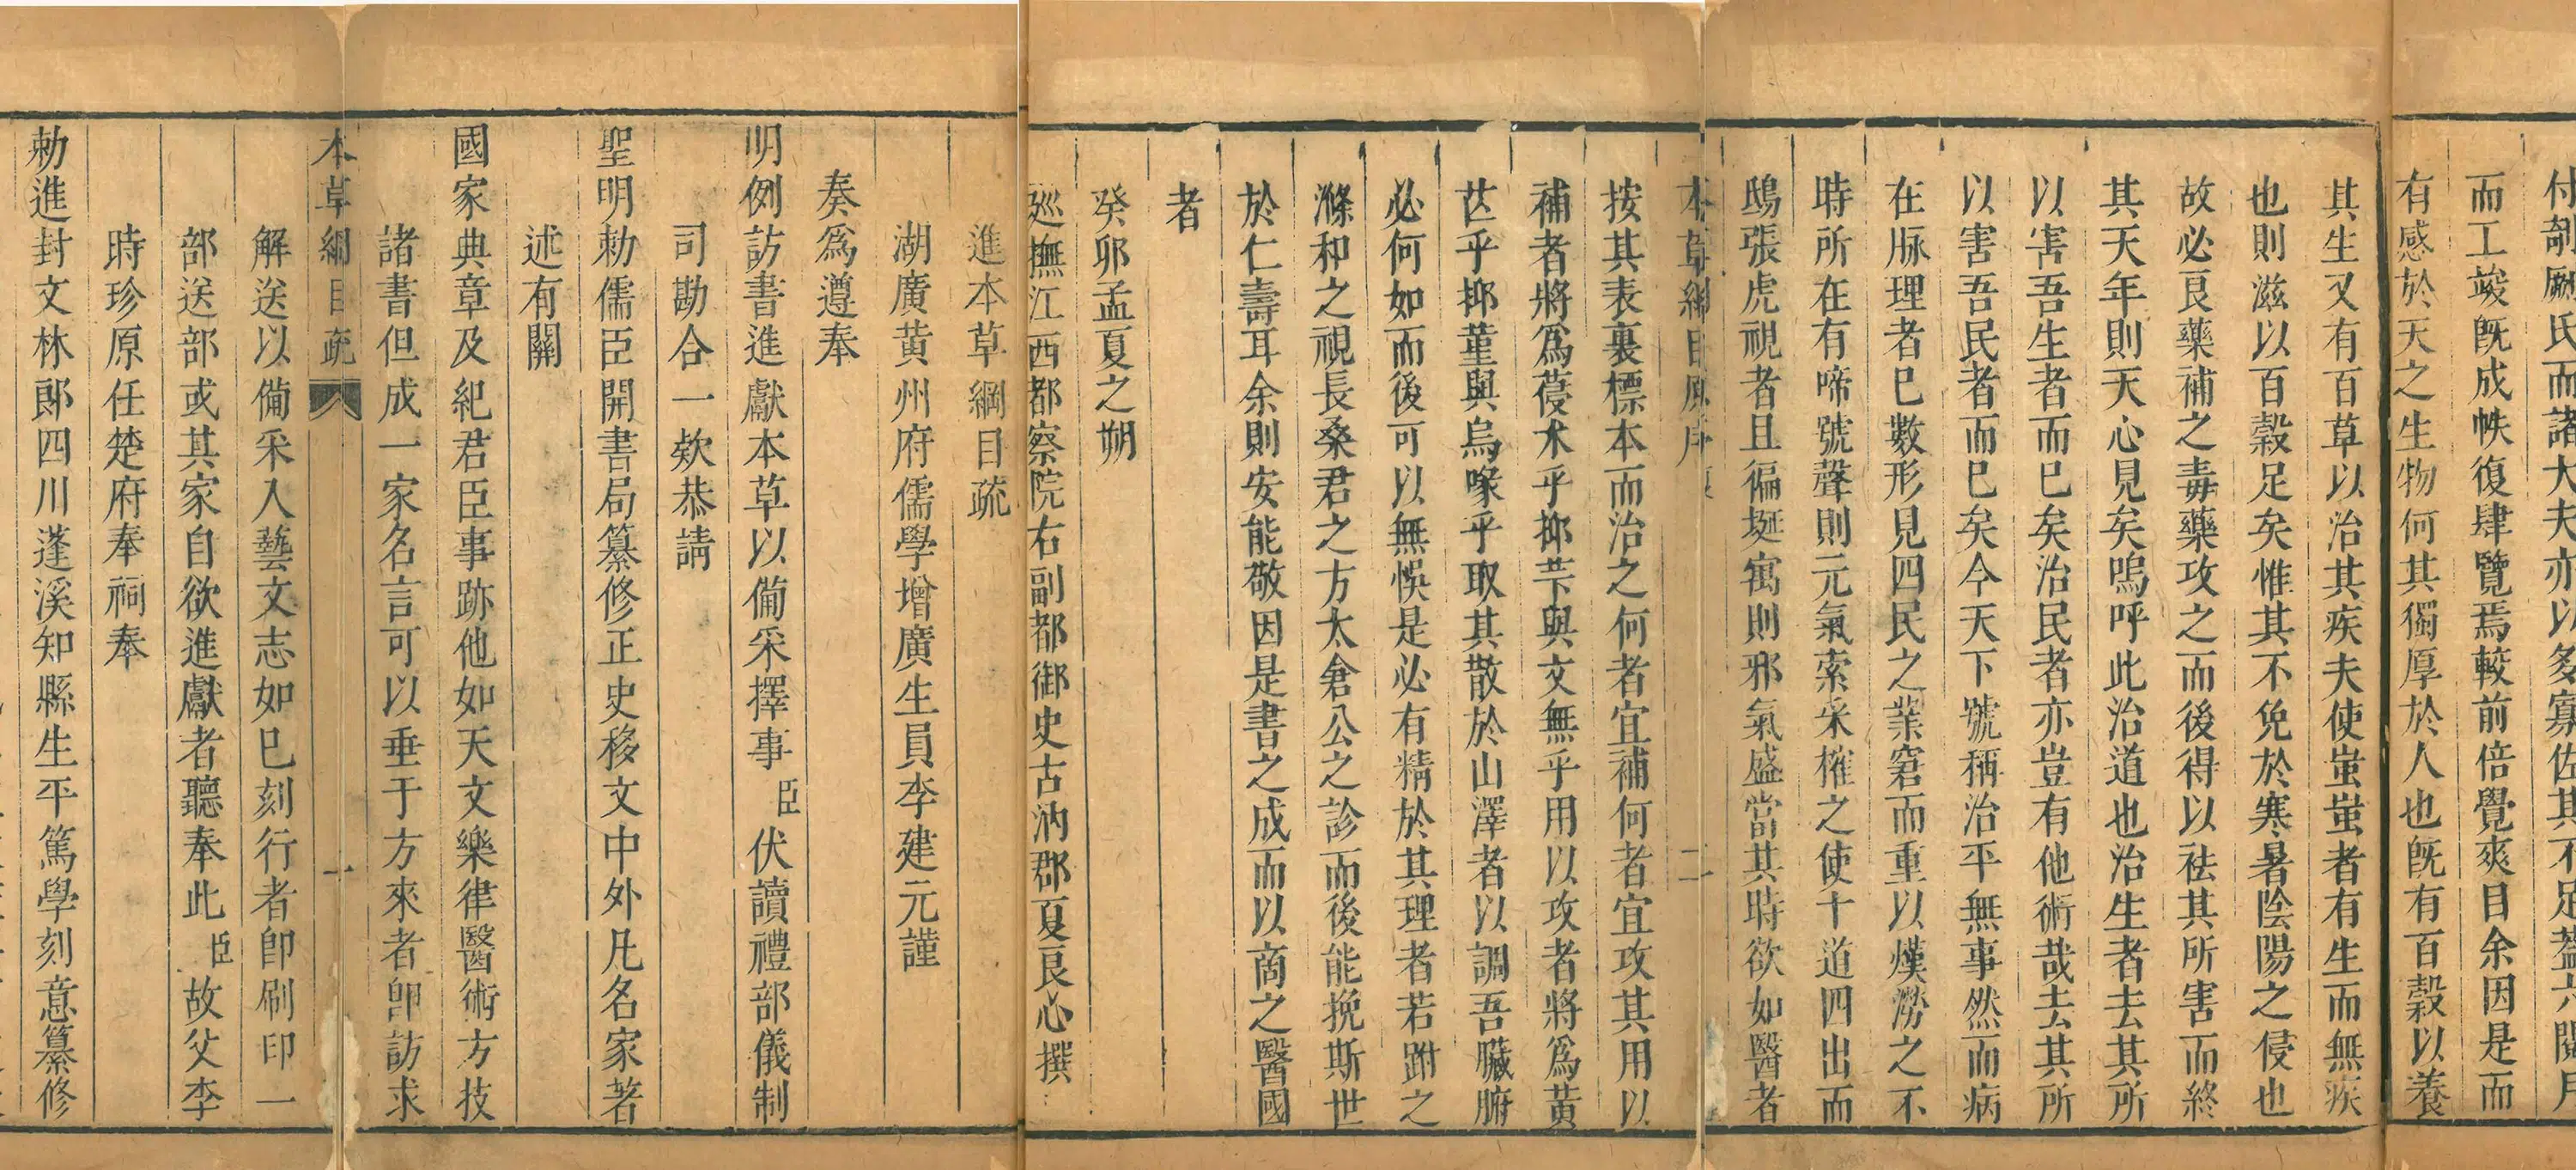 付剞劂氏而諸大夫亦以多寡佐其不足葢六閱月
而工竣旣成帙復肆覽焉較前倍覺爽目余因是而
有感於天之生物何其獨厚於人也旣有百穀以養
其生又有百草以治其疾夫使蚩蚩者有生而無疾
也則滋以百穀足矣惟其不免於寒暑陰陽之侵也
故必良藥補之毒藥攻之而後得以祛其所害而終
其天年則天心見矣嗚呼此治道也治生者去其所
以害吾生者而已矣治民者亦豈有他術哉去其所
以害吾民者而已矣今天下號稱治平無事然而病
在脉理者已數形見四民之業窘而重以熯澇之不
時所在有啼號聲則元氣索采榷之使十道四出而
鴟張虎視者且徧埏㝢則邪氣盛當其時欲如醫者
本草綱目原序 二
按其表裏標本而治之何者宜補何者宜攻其用以
補者將爲葠朮乎抑苄與文無乎用以攻者將爲黃
芑乎抑堇與烏喙乎取其散於山澤者以調吾臟腑
必何如而後可以無悞是必有精於其理者若跗之
滌和之視長桑君之方太倉公之診而後能挽斯世
於仁壽耳余則安能敬因是書之成而以商之醫國
者
癸卯孟夏之朔
廵撫江西都察院右副都御史古汭郡夏良心撰
進本草綱目疏
湖廣黃州府儒學增廣生員李建元謹
奏爲遵奉
明例訪書進獻本草以備采擇事臣伏讀禮部儀制
司勘合一欵恭請
聖明勅儒臣開書局纂修正史移文中外凡名家著
述有關
國家典章及紀君臣事跡他如天文樂律醫術方技
諸書但成一家名言可以垂于方來者卽訪求
本草綱目疏 一
解送以備采入藝文志如已刻行者卽刷印一
部送部或其家自欲進獻者聽奉此臣故父李
時珍原任楚府奉祠奉
勅進封文林郎四川蓬溪知縣生平篤學刻意纂修